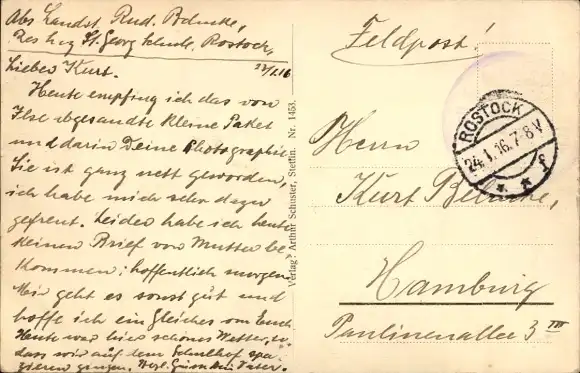 Abs Landst. Rud. Behncke,
Res. Laz. St. Georg Schule, Rostock,
23/1.16
Lieber Kurt.
Heute empfing ich das von
Ilse abgesandte kleine Paket
und darin Deine Photographie
Sie ist ganz nett geworden,
ich habe mich sehr dazu
gefreut. Leider habe ich heute
keinen Brief von Mutter be
kommen; hoffentlich morgen
Mir geht es sonst gut und
hoffe ich ein Gleiches von Euch
Heute war hier schönes Wetter, so
dass wir auf dem Schulhof spa
zieren gingen. Herzl. Gruss Dein Vater.
Verlag Arthur Schuster, Stettin. Nr. 1453.
Feldpost!
ROSTOCK
24.1.16.7-8V
Herrn
Kurt Behncke,
Hamburg
Paulinenallee 3 III